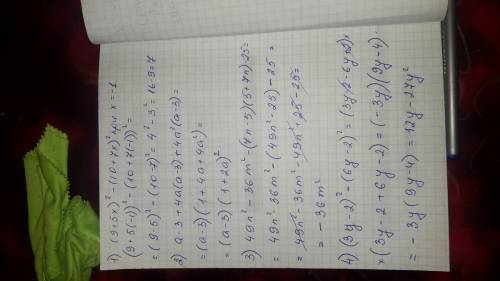 1) (9+5x)² - (10+7x)² при x = -1
(9+5(-1))² - (10+7(-1))² =
= (9-5)² - (10-7)² = 4² - 3² = 16-9=7
2) a-3+4a(a-3)+4a²(a-3)=
= (a-3)(1+4a+4a²)=
= (a-3)(1+2a)²
3) 49n² - 36m² - (7n-5)(5+7n)-25=
= 49n² - 36m² - (49n² - 25) - 25 =
= 49n² - 36m² - 49n² + 25 - 25 =
= - 36m²
4) (3y-2)² - (6y-2)² = (3y-2-6y+2)×
× (3y-2+6y-2) = (-3y)(9y-4) =
= -3y(9y-4) = 12y-27y²